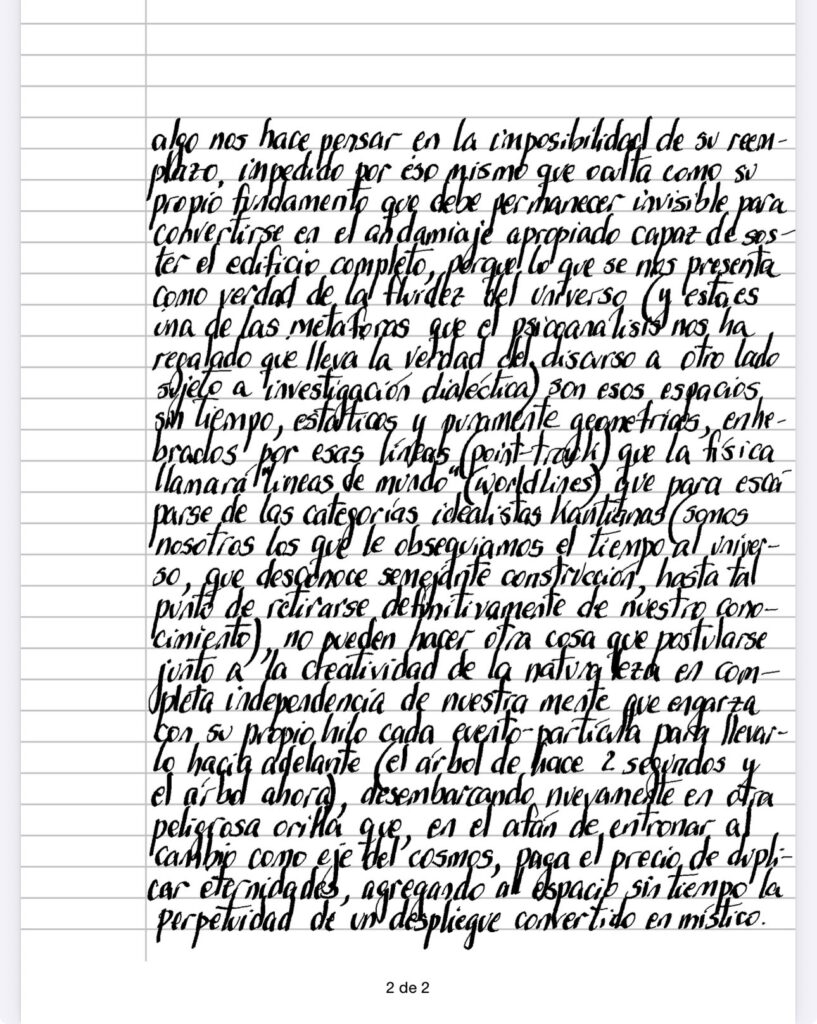 algo nos hace pensar en la imposibilidad de su reem-
plazo, impedido por eso mismo que oculta como su
propio fundamento que debe permanecer invisible para
convertirse en el andamiaje apropiado capaz de sos-
ter el edificio completo, porque lo que se nos presenta
como verdad de la fluidez del universo (y esta es
una de las metáforas que el psicoanálisis nos ha
regalado que lleva la verdad del discurso a otro lado
sujeto a investigación dialéctica) son esos espacios
sin tiempo, estáticos y puramente geometrías, enhe-
brados por esas líneas (point-track) que la física
llamará "líneas de mundo" (worldlines) que para esca
parse de las categorías idealistas kantianas (somos
nosotros los que le obsequiamos el tiempo al univer-
so, que desconoce semejante construcción, hasta tal
punto de retirarse definitivamente de nuestro cono-
cimiento), no pueden hacer otra cosa que postularse
junto a la creatividad de la naturaleza en com-
pleta independencia de nuestra mente que engarza
con su propio hilo cada evento-partícula para llevar-
lo hacia adelante (el árbol de hace 2 segundos y
el árbol ahora), desembarcando nuevamente en otra
peligrosa orilla que, en el afán de entronar al
cambio como eje del cosmos, paga el precio de dupli-
car eternidades, agregando al espacio sin tiempo la
perpetuidad de un despliegue convertido en místico.
2 de 2